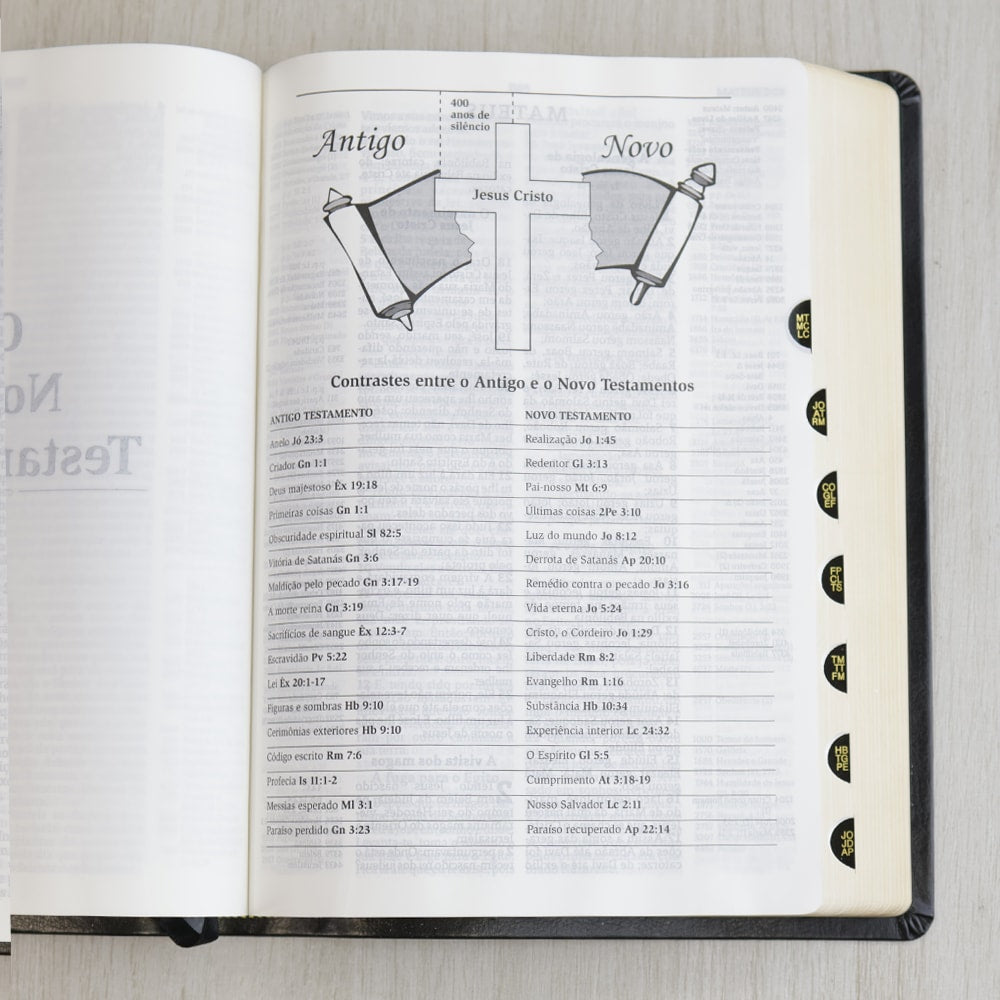 400
anos de
silêncio
Antigo
Novo
Jesus Cristo
Contrastes entre o Antigo e o Novo Testamentos
ANTIGO TESTAMENTO NOVO TESTAMENTO
Anelo Jó 23:3 Realização Jo 1:45
Criador Gn 1:1 Redentor Gl 3:13
Deus majestoso Êx 19:18 Pai-nosso Mt 6:9
Primeiras coisas Gn 1:1 Últimas coisas 2Pe 3:10
Obscuridade espiritual Sl 82:5 Luz do mundo Jo 8:12
Vitória de Satanás Gn 3:6 Derrota de Satanás Ap 20:10
Maldição pelo pecado Gn 3:17-19 Remédio contra o pecado Jo 3:16
A morte reina Gn 3:19 Vida eterna Jo 5:24
Sacrifícios de sangue Êx 12:3-7 Cristo, o Cordeiro Jo 1:29
Escravidão Pv 5:22 Liberdade Rm 8:2
Lei Êx 20:1-17 Evangelho Rm 1:16
Figuras e sombras Hb 9:10 Substância Hb 10:34
Cerimônias exteriores Hb 9:10 Experiência interior Lc 24:32
Código escrito Rm 7:6 O Espírito Gl 5:5
Profecia Is 11:1-2 Cumprimento At 3:18-19
Messias esperado Ml 3:1 Nosso Salvador Lc 2:11
Paraíso perdido Gn 3:23 Paraíso recuperado Ap 22:14
MT
MC
LC
JO
AT
RM
CO
GL
EF
FP
CL
TS
TM
TT
FM
HB
TG
PE
JO
JD
AP